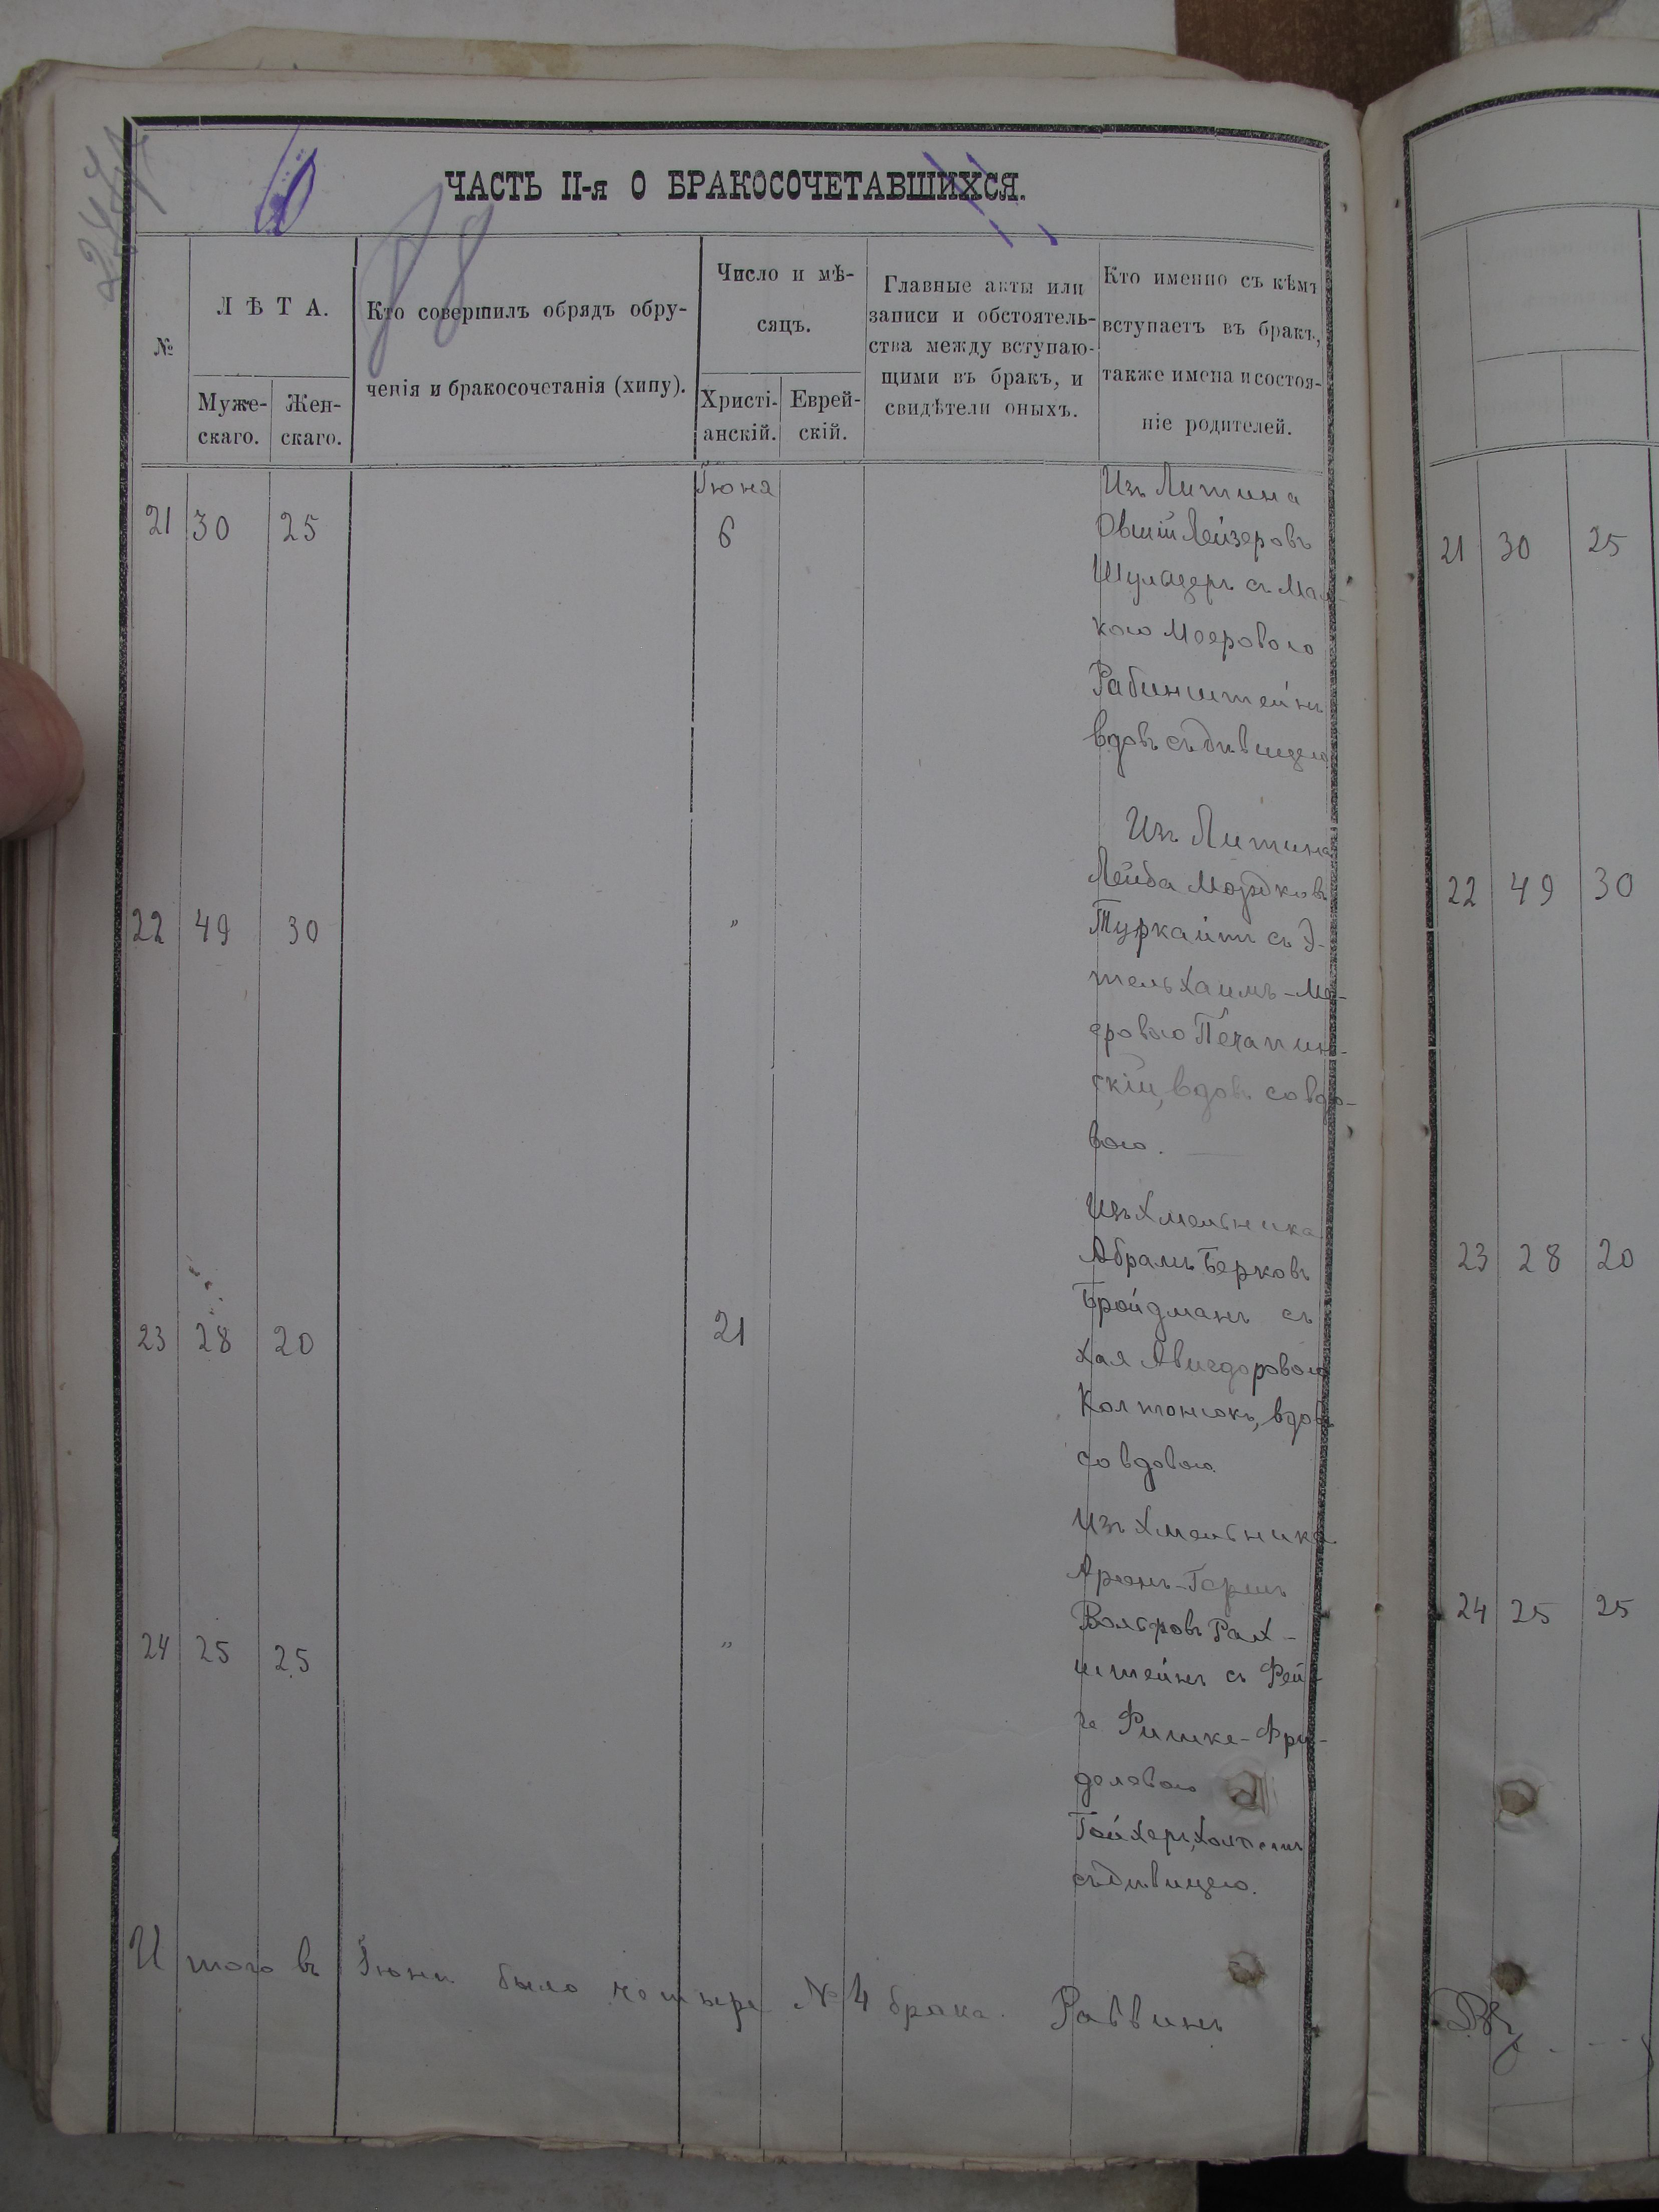 ЧАСТЬ II-я О БРАКОСОЧЕТАВШИХСЯ.
№
ЛѢТА.
Муже-
скаго.
Жен-
скаго.
Кто совершилъ обрядъ обру-
ченія и бракосочетанія (хипу).
Число и мѣ-
сяцъ.
Христі-
анскій.
Еврей-
скій.
Главные акты или
записи и обстоятель-
ства между вступаю-
щими въ бракъ, и
свидѣтели оныхъ.
Кто именно съ кѣмъ
вступаетъ въ бракъ,
также имена и состоя-
ніе родителей.
Іюня
21 30 25 6
Изъ Литина
Овшій Лейзеровъ
съ Мал-
кою Мееровою
Рабинштейнъ
вдовъ съ дѣвицею
22 49 30 "
Изъ Литина
Лейба Мордковъ
Туркайтъ съ Э-
тель Хаимъ-Ме-
еровою
скій, вдовъ со вдо-
вою.
23 28 20 21
Изъ Хмельника
Абрамъ Берковъ
Бройдманъ съ
Хая Авигдоровою
Колтонюкъ, вдовъ
со вдовою
24 25 25 "
Изъ Хмельника
Аронъ-Гершъ
Вольфовъ
штейнъ съ Фей-
га
деловою
съ дѣвицею.
Итого въ Іюни было четыре № 4 брака. Раввинъ
21 30 25
22 49 30
23 28 20
24 25 25